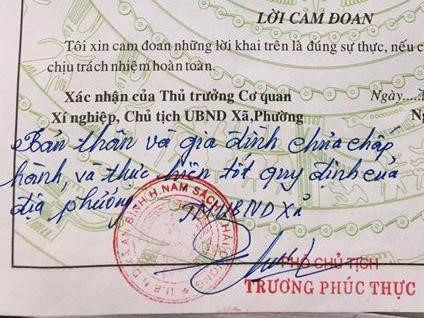 LỜI CAM ĐOAN
Tôi xin cam đoan những lời khai trên là đúng sự thực, nếu c
chịu trách nhiệm hoàn toàn.
Xác nhận của Thủ trưởng Cơ quan
Ngày....
Xí nghiệp, Chủ tịch UBND Xã,Phường
Bản thân và gia đình chưa chấp
hành, và thực hiện tốt quy định của
địa phương
TM UBND Xã
U.B.N.D XÃ AN BÌNH H. NAM SÁCH
PHÓ CHỦ TỊCH
TRƯƠNG PHÚC THỰC